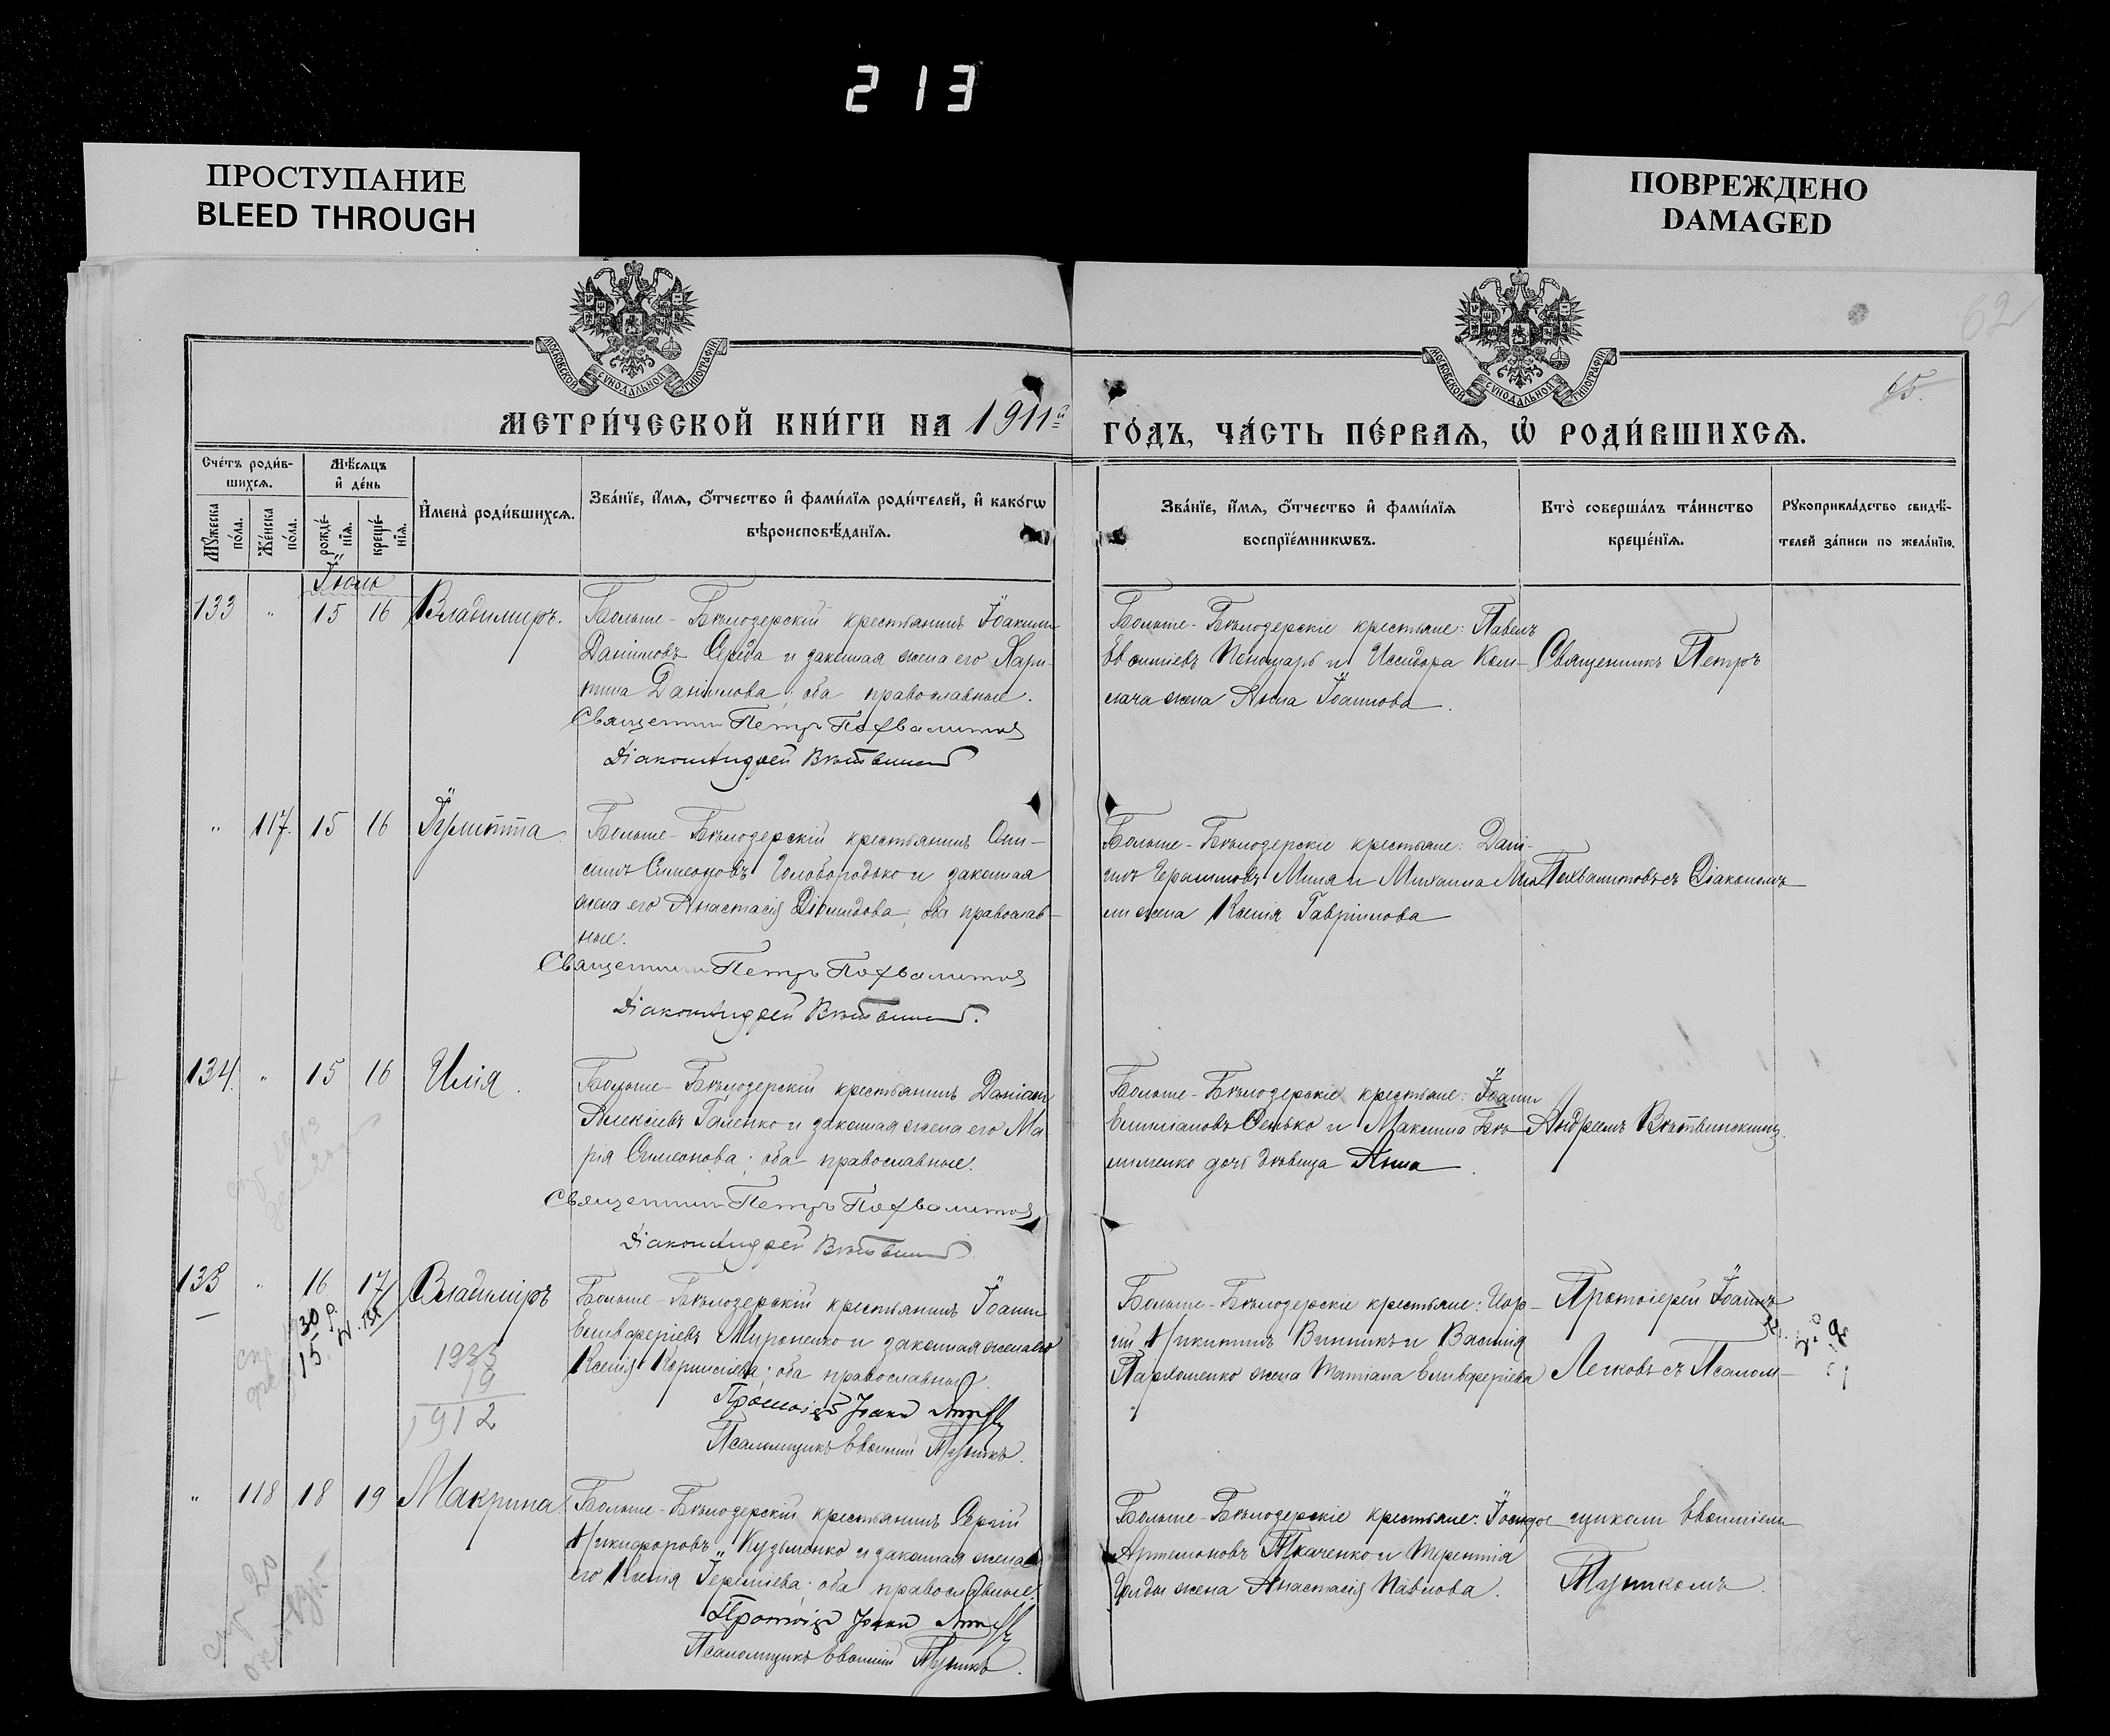 213
ПРОСТУПАНИЕ
BLEED THROUGH
ПОВРЕЖДЕНО
DAMAGED
62
МОСКОВСКОЙ СѴНОДАЛЬНОЙ ТИПОГРАФІИ
МОСКОВСКОЙ СѴНОДАЛЬНОЙ ТИПОГРАФІИ
65.
МЕТРИ́ЧЕСКОЙ КНИ́ГИ НА 1911й
ГО́ДЪ, ЧА́СТЬ ПЕ́РВАѦ, Ѡ҆ РОДИ́ВШИХСѦ.
Сче́тъ роди́в-
шихсѧ.
Мѣ́сѧцъ
и҆ де́нь
Мꙋ́жеска по́ла.
Же́нска по́ла.
рожде́-нїѧ.
креще́-нїѧ.
И҆мена̀ роди́вшихсѧ.
Зва́нїе, и҆́мѧ, ѻ҆́тчество и҆ фами́лїѧ роди́телей, и҆ како́гѡ
вѣроисповѣ́данїѧ.
Зва́нїе, и҆́мѧ, ѻ҆́тчество и҆ фами́лїѧ
воспрїе́мникѡвъ.
Кто̀ соверша́лъ та́инство
креще́нїѧ.
Рꙋкоприкла́дство свидѣ́-
телей за́писи по жела́нїю.
Іюль
133 " 15 16 Владимиръ.
Больше-Бѣлозерскій крестьянинъ Іоакимъ
Даніиловъ Середа и законная жена его Хари-
тина Даніилова; оба православные.
Священникъ Петръ Похвалитовъ
Діаконъ Андрей Вѣтвинскій
Больше-Бѣлозерскіе крестьяне: Павелъ
Евѳиміевъ и Исидора
жена Анна Іоаннова.
Священникъ Петръ
" 117. 15 16 Іулитта.
Больше-Бѣлозерскій крестьянинъ Они-
симъ Симеоновъ Голобородько и законная
жена его Анастасія Діомидова; оба православ-
ные.
Священникъ Петръ Похвалитовъ
Діаконъ Андрей Вѣтвинскій.
Больше-Бѣлозерскіе крестьяне: Дані-
илъ Герасимовъ и Михаила
жена Ксенія Гавріилова
Похвалитовъ съ Діакономъ
134. " 15 16 Илія.
Больше-Бѣлозерскій крестьянинъ Даніилъ
Алексіевъ Галенко и законная жена его Ма-
рія Симеонова; оба православные.
Священникъ Петръ Похвалитовъ
Діаконъ Андрей Вѣтвинскій
Больше-Бѣлозерскіе крестьяне: Іоаннъ
Емиліановъ Сенько и Максима Бѣ-
лименко дочь дѣвица Анна.
Андреемъ Вѣтвинскимъ.
135 " 16 17 Владиміръ
Больше-Бѣлозерскій крестьянинъ Іоаннъ
Елевѳеріевъ Мироненко и законная жена его
Ксенія Корниліева; оба православные.
Протоіерей Іоаннъ
Псаломщикъ Евѳимій Тупикъ.
30
15
1935
19
1912
Больше-Бѣлозерскіе крестьяне: Геор-
гій Никитинъ Винникъ и Василія
Пархоменко жена Татіана Елевѳеріева
Протоіерей Іоаннъ
Легковъ съ Псалом-
" 118 18 19 Макрина.
Больше-Бѣлозерскій крестьянинъ Сергій
Никифоровъ Кузьменко и законная жена
его Ксенія Іереміева; оба православные.
Протоіерей Іоаннъ
Псаломщикъ Евѳимій Тупикъ.
Больше-Бѣлозерскіе крестьяне:
Артемоновъ Ткаченко и Терентія
жена Анастасія Павлова.
щикомъ Евѳиміемъ
Тупикомъ.